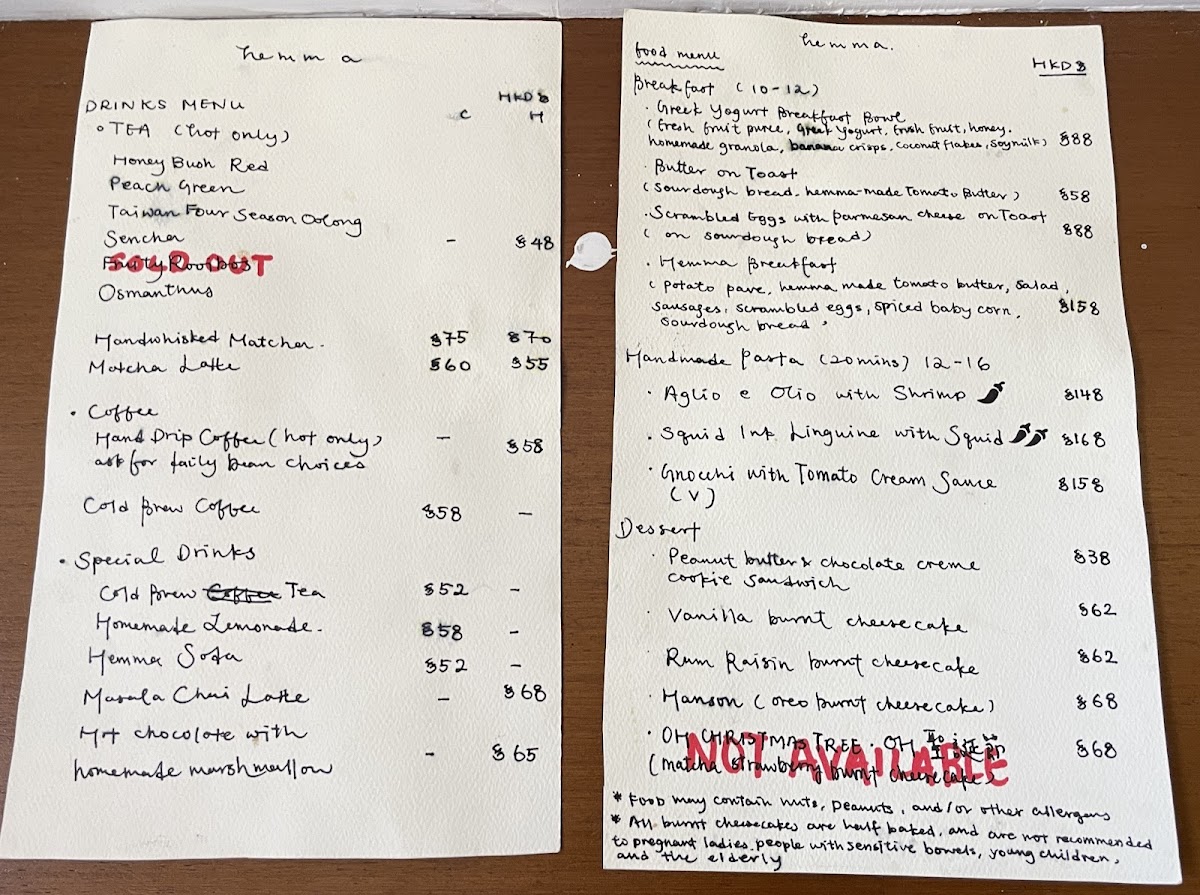 hemma
DRINKS MENU
HKD$
C H
TEA (hot only)
Honey Bush Red
Peach Green
Taiwan Four Season Oolong
Sencha - $48
Fruity Rooibos
SOLD OUT
Osmanthus
Handwhisked Matcha. $75 $70
Matcha Latte $60 $55
Coffee
Hand Drip Coffee (hot only) - $58
ask for daily bean choices
Cold Brew Coffee $58 -
Special Drinks
Cold Brew Tea $52 -
Homemade Lemonade. $58 -
Hemma Soda $52 -
Masala Chai Latte - $68
Hot chocolate with
homemade marshmallow - $65
hemma.
food menu
HKD$
Breakfast (10-12)
· Greek Yogurt Breakfast Bowl
(fresh fruit puree, Greek yogurt, fresh fruit, honey.
homemade granola, banana crisps, coconut flakes, soymilk) $88
· Butter on Toast
(sourdough bread. hemma-made Tomato Butter) $58
· Scrambled Eggs with parmesan cheese on Toast
(on sourdough bread) $88
· Hemma Breakfast
(potato pave, hemma made tomato butter, salad,
sausages, scrambled eggs, spiced baby corn, $158
sourdough bread)
Handmade Pasta (20mins) 12-16
· Aglio e Olio with Shrimp $148
· Squid Ink Linguine with Squid $168
· Gnocchi with Tomato Cream Sauce $158
(V)
Dessert
· Peanut butter & chocolate creme $38
cookie sandwich
· Vanilla burnt cheesecake $62
· Rum Raisin burnt cheesecake $62
· Hanson (oreo burnt cheesecake) $68
· OH CHRISTMAS TREE · OH $68
NOT AVAILABLE
(matcha strawberry burnt cheesecake)
* Food may contain nuts, peanuts, and/or other allergens
* All burnt cheesecakes are half baked, and are not recommended
to pregnant ladies, people with sensitive bowels, young children,
and the elderly